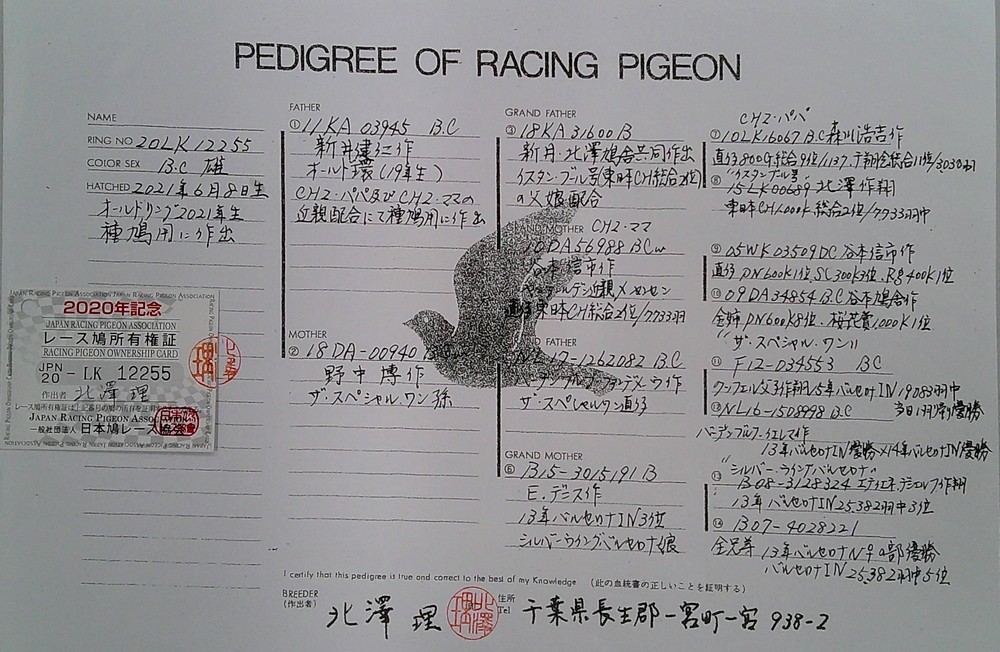 PEDIGREE OF RACING PIGEON
NAME
RING NO. 20LK12255
COLOR SEX B.C 雄
HATCHED 2021年6月8日生
オールドリング2021年生
種鳩用に作出
2020年記念
JAPAN RACING PIGEON ASSOCIATION
レース鳩所有権証
RACING PIGEON OWNERSHIP CARD
JPN
20 - LK 12255
作出者 北澤 理
JAPAN RACING PIGEON
一般社団法人 日本鳩レース協会
FATHER
① 11KA 03945 B.C
新井健仁作
オールド環(19年生)
CH2・パパ及びCH2・ママの
近親配合にて種鳩用に作出
MOTHER
② 18DA-00940
野中博作
ザ・スペシャル・ワン孫
GRAND FATHER
③ 18KA 31600 B
新月・北澤鳩舎共同作出
イスタン・ブール号(東日本CH総合2位)
の父娘配合
GRAND MOTHER CH2・ママ
10DA56988 BCw
谷本信市作
近親×センセン
直仔東日本CH総合2位/7733羽
GRAND FATHER
12-1262082 B.C
ザ・スペシャルワン直仔
GRAND MOTHER
⑥ B15-3015191 B
E.デニス作
13年バルセロナIN3位
シルバーウイングバルセロナ娘
CH2・パパ
⑦ 10LK16067 B.C 森川浩吉作
直仔800G総合9位/1137.
"イスタンブール号"
⑧ 15LK00689 北澤作翔
東日本CH1,000K総合2位/7733羽中
⑨ 05WK03509DC 谷本信市作
直仔PN600K1位,SC300K3位,Rg400K1位
⑩ 09DA34854 B.C 谷本鳩舎作
全姉PN600K8位.桜花賞1,000K1位
"ザ・スペシャル・ワン"
⑪ F12-034553 BC
クッフェル父子作翔15年バルセロナIN19083羽中
⑫ NL16-1508998 B.C 当日1羽帰り優勝
13年バルセロナIN優勝×14年バルセロナIN優勝
"シルバーウイングバルセロナ"
⑬ B08-3128324
13年バルセロナIN25,382羽中3位
⑭ B07-4028221
全兄弟 13年バルセロナN♀の部優勝
バルセロナIN25,382羽中5位
I certify that this pedigree is true and correct to the best of my Knowledge (此の血統書の正しいことを証明する)
BREEDER
(作出者) 北澤 理
住所
Tel 千葉県長生郡一宮町一宮 938-2